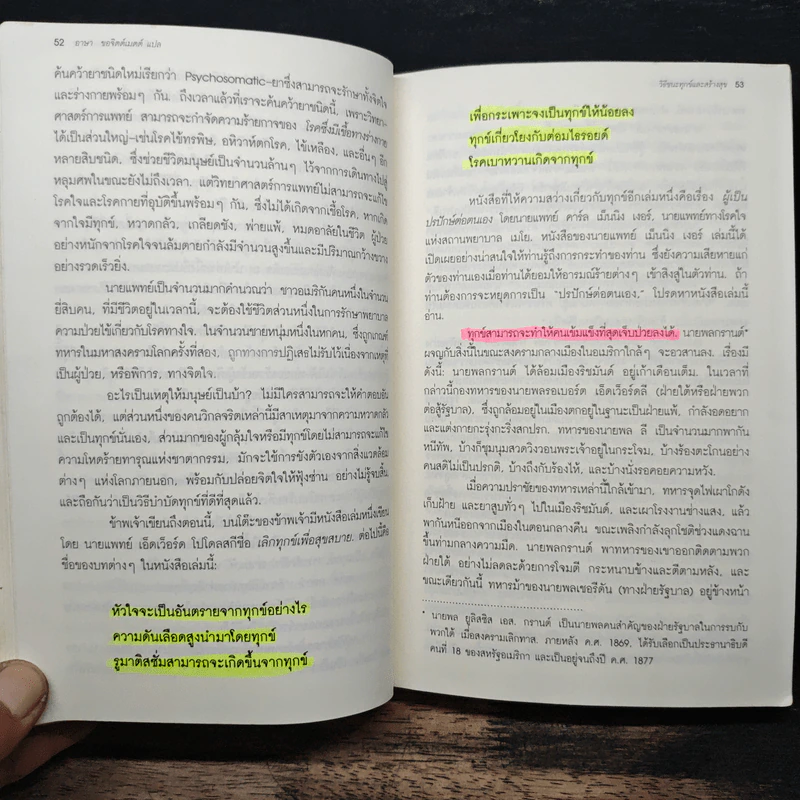 52 อาษา ขอจิตต์เมตต์ แปล
ค้นคว้ายาชนิดใหม่เรียกว่า Psychosomatic-ยาซึ่งสามารถจะรักษาทั้งจิตใจ
และร่างกายพร้อมๆ กัน. ถึงเวลาแล้วที่เราจะค้นคว้ายาชนิดนี้, เพราะวิทยา-
ศาสตร์การแพทย์ สามารถจะกำจัดความร้ายกาจของ โรคซึ่งมีเชื้อทางร่างกาย
ได้เป็นส่วนใหญ่-เช่นโรคไข้ทรพิษ, อหิวาห์ตกโรค, ไข้เหลือง, และอื่นๆ อีก
หลายสิบชนิด, ซึ่งช่วยชีวิตมนุษย์เป็นจำนวนล้านๆ ไว้จากการเดินทางไปสู่
หลุมศพในขณะยังไม่ถึงเวลา. แต่วิทยาศาสตร์การแพทย์ไม่สามารถจะแก้ไข
โรคใจและโรคกายที่อุบัติขึ้นพร้อมๆ กัน, ซึ่งไม่ได้เกิดจากเชื้อโรค, หากเกิด
จากใจมีทุกข์, หวาดกลัว, เกลียดชัง, พ่ายแพ้, หมดอาลัยในชีวิต ผู้ป่วย
อย่างหนักจากโรคใจจนล้มตายกำลังมีจำนวนสูงขึ้นและมีปริมาณกว้างขวาง
อย่างรวดเร็วยิ่ง.
นายแพทย์เป็นจำนวนมากคำนวณว่า ชาวอเมริกันคนหนึ่งในจำนวน
ยี่สิบคน, ที่มีชีวิตอยู่ในเวลานี้, จะต้องใช้ชีวิตส่วนหนึ่งในการรักษาพยาบาล
ความป่วยไข้เกี่ยวกับโรคทางใจ. ในจำนวนชายหนุ่มหนึ่งในหกคน, ซึ่งถูกเกณฑ์
ทหารในมหาสงครามโลกครั้งที่สอง, ถูกทางการปฏิเสธไม่รับไว้เนื่องจากเหตุที่
เป็นผู้ป่วย, หรือพิการ, ทางจิตใจ.
อะไรเป็นเหตุให้มนุษย์เป็นบ้า? ไม่มีใครสามารถจะให้คำตอบอัน
ถูกต้องได้, แต่ส่วนหนึ่งของคนวิกลจริตเหล่านี้มีสาเหตุมาจากความหวาดกลัว
และเป็นทุกข์นั่นเอง, ส่วนมากของผู้กลุ้มใจหรือมีทุกข์โดยไม่สามารถจะแก้ไข
ความโหดร้ายทารุณแห่งชาตากรรม, มักจะใช้การขังตัวเองจากสิ่งแวดล้อม
ต่างๆ แห่งโลกภายนอก, พร้อมกับปล่อยจิตใจให้ฟุ้งซ่าน อย่างไม่รู้จบสิ้น
และถือกันว่าเป็นวิธีบำบัดทุกข์ที่ดีที่สุดแล้ว.
ข้าพเจ้าเขียนถึงตอนนี้, บนโต๊ะของข้าพเจ้ามีหนังสือเล่มหนึ่งเขียน
โดย นายแพทย์ เอ็ดเวอร์ด โปโดลสกีชื่อ เลิกทุกข์เพื่อสุขสบาย. ต่อไปนี้คือ
ชื่อของบทต่างๆ ในหนังสือเล่มนี้:
หัวใจจะเป็นอันตรายจากทุกข์อย่างไร
ความดันเลือดสูงนำมาโดยทุกข์
รูมาติสซั่มสามารถจะเกิดขึ้นจากทุกข์
วิธีชนะทุกข์และสร้างสุข 53
เพื่อกระเพาะจงเป็นทุกข์ให้น้อยลง
ทุกข์เกี่ยวโยงกับต่อมไธรอยด์
โรคเบาหวานเกิดจากทุกข์
หนังสือที่ให้ความสว่างเกี่ยวกับทุกข์อีกเล่มหนึ่งคือเรื่อง ผู้เป็น
ปรปักษ์ต่อตนเอง โดยนายแพทย์ คาร์ล เม็นนิง เงอร์, นายแพทย์ทางโรคใจ
แห่งสถานพยาบาล เมโย. หนังสือของนายแพทย์ เม็นนิง เงอร์ เล่มนี้ได้
เปิดเผยอย่างน่าสนใจให้ท่านรู้ถึงการกระทำของท่าน ซึ่งยังความเสียหายแก่
ตัวของท่านเองเมื่อท่านได้ยอมให้อารมณ์ร้ายต่างๆ เข้าสิงสู่ในตัวท่าน. ถ้า
ท่านต้องการจะหยุดการเป็น "ปรปักษ์ต่อตนเอง," โปรดหาหนังสือเล่มนี้
อ่าน.
ทุกข์สามารถจะทำให้คนเข้มแข็งที่สุดเจ็บป่วยลงได้. นายพลกรานต์*
ผจญกับสิ่งนี้ในขณะสงครามกลางเมืองในอเมริกาใกล้ๆ จะอวสานลง. เรื่องมี
ดังนี้: นายพลกรานต์ ได้ล้อมเมืองริชมันด์ อยู่เก้าเดือนเต็ม. ในเวลาที่
กล่าวนี้กองทหารของนายพลรอเบอร์ต เอ็ดเวิร์ดลี (ฝ่ายใต้หรือฝ่ายพวก
ต่อสู้รัฐบาล), ซึ่งถูกล้อมอยู่ในเมืองตกอยู่ในฐานะเป็นฝ่ายแพ้, กำลังอดอยาก
และแต่งกายกะรุ่งกะริ่งสกปรก. ทหารของนายพล ลี เป็นจำนวนมากพากัน
หนีทัพ, บ้างก็ชุมนุมสวดวิงวอนพระเจ้าอยู่ในกระโจม, บ้างร้องตะโกนอย่าง
คนสติไม่เป็นปรกติ, บ้างถึงกับร้องไห้, และบ้างนั่งรอคอยความหวัง.
เมื่อความปราชัยของทหารเหล่านี้ใกล้เข้ามา, ทหารจุดไฟเผาโกดัง
เก็บฝ้าย และยาสูบทั่วๆ ไปในเมืองริชมันด์, และเผาโรงงานช่างแสง, แล้ว
พากันหนีออกจากเมืองในตอนกลางคืน ขณะเพลิงกำลังลุกโชติช่วงแดงฉาน
ขึ้นท่ามกลางความมืด. นายพลกรานต์ พาทหารของเขาออกติดตามพวก
ฝ่ายใต้ อย่างไม่ลดละด้วยการโจมตี กระหนาบข้างและตีตามหลัง, และ
ขณะเดียวกันนี้ ทหารม้าของนายพลเชอรีดัน (ทางฝ่ายรัฐบาล) อยู่ข้างหน้า
* นายพล ยูลิสซิส เอส. กรานต์ เป็นนายพลคนสำคัญของฝ่ายรัฐบาลในการรบกับ
พวกใต้ เมื่อสงครามเลิกทาส. ภายหลัง ค.ศ. 1869, ได้รับเลือกเป็นประธานาธิบดี
คนที่ 18 ของสหรัฐอเมริกา และเป็นอยู่จนถึงปี ค.ศ. 1877